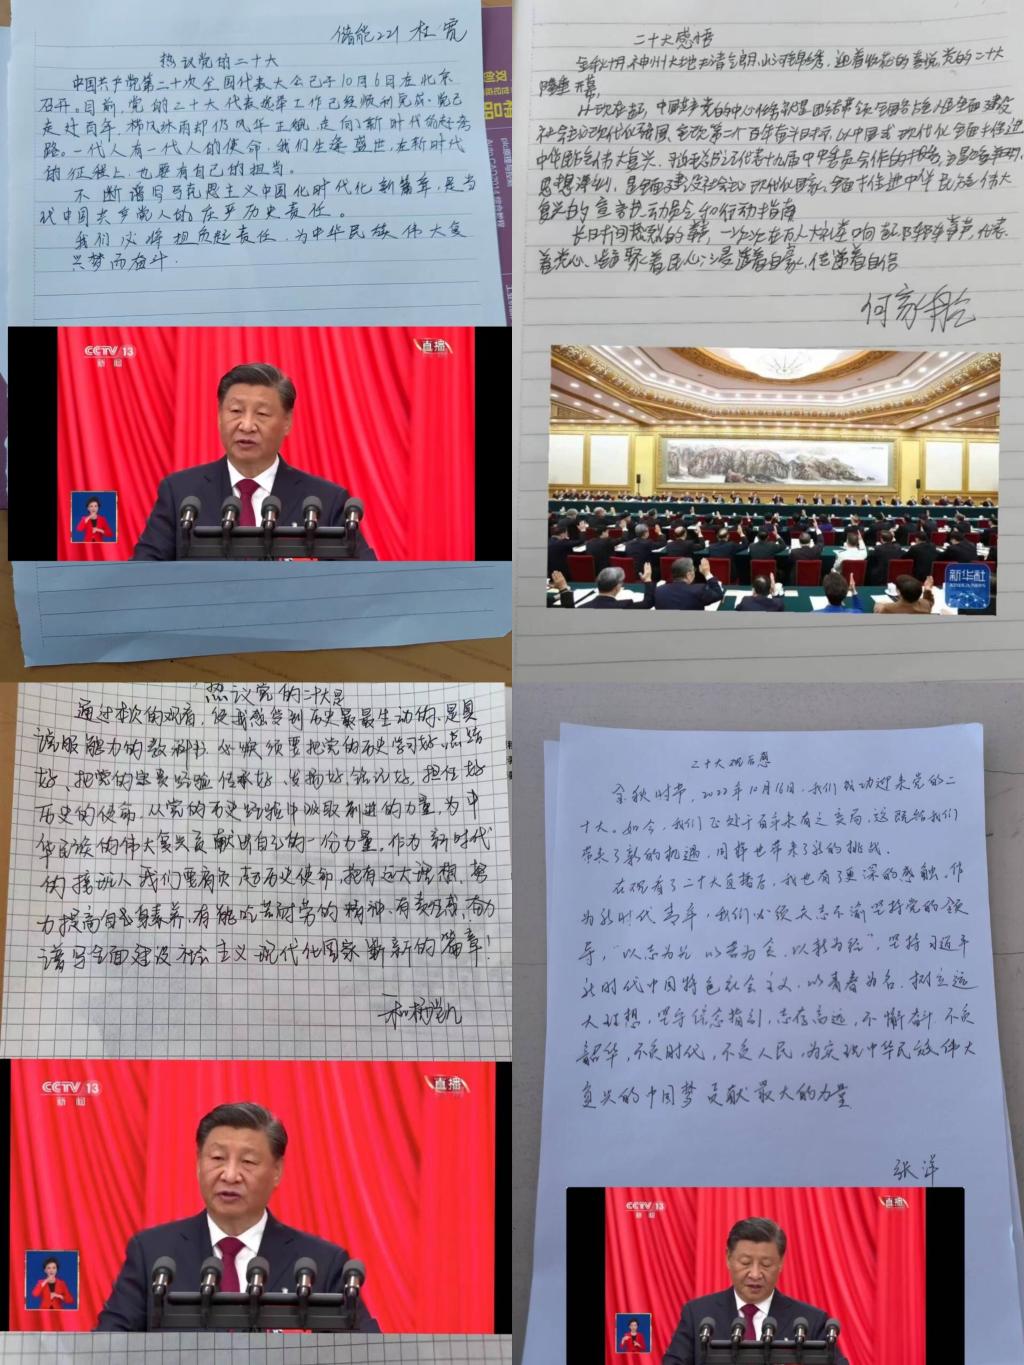 储能221 杜宽
热议党的二十大
中国共产党第二十次全国代表大会已于10月16日在北京
召开。目前,党的二十大代表选举工作已经顺利完成。党已
走过百年,栉风沐雨却仍风华正貌,走向了新时代的赶考
路。一代人有一代人的使命,我们生逢盛世,在新时代
的征程上,也要有自己的担当。
不断谱写马克思主义中国化时代化新篇章,是当
代中国共产党人的庄严历史责任。
我们必将担负起责任,为中华民族伟大复
兴梦而奋斗.
CCTV 13
新闻
直播
二十大感悟
金秋十月,神州大地,天清气朗,山河锦绣,迎着收获的喜悦,党的二十大
隆重开幕,
从现在起,中国共产党的中心任务就是团结带领全国各族人民全面建设
社会主义现代化强国,实现第二个百年奋斗目标,以中国式现代化全面推进
中华民族伟大复兴。习近平总书记代表十九届中央委员会作的报告,
思想深刻,是全面建设社会主义现代化国家、全面推进中华民族伟大
复兴的宣言书、动员令和行动指南
长时间热烈的掌声,一次次在万人大礼堂响起,阵阵掌声,
着党心、凝聚着民心;浸透着自豪,传递着自信
何家
新华社
热议党的二十大是
通过本次的观看,使我感觉到历史最最生动的、是具
说服能力的教科书,必须须要把党的历史学习好、总结
好、把党的宝贵经验传承好、发扬好、铭记好,担任好
历史的使命,从党的历史经验中吸取前进的力量,为中
华民族的伟大复兴贡献出自己的一份力量。作为新时代
的接班人我们要肩负起历史使命,拥有远大理想,努
力提高自己自身素养,有能吃苦耐劳的精神,有责任感,奋力
谱写全面建设社会主义现代化国家崭新的篇章!
和杨凯
CCTV 13
新闻
直播
二十大观后感
金秋时节,2022年10月16日,我们成功迎来党的二
十大。如今,我们正处于百年未有之变局,这既给我们
带来了新的机遇,同样也带来了新的挑战.
在观看了二十大直播后,我也有了更深的感触。作
为新时代青年,我们必须矢志不渝坚持党的领
导,"以志为先 以苦为舍,以新为径",坚持习近平
新时代中国特色社会主义,以青春为名,树立远
大理想,坚守信念指引,志存高远,不懈奋斗,不负
韶华,不负时代,不负人民,为实现中华民族伟大
复兴的中国梦贡献最大的力量
张洋
CCTV 13
新闻
直播